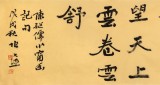 望天上
雲卷雲
舒
陳繼儒小窗幽
記句
戊戌秋